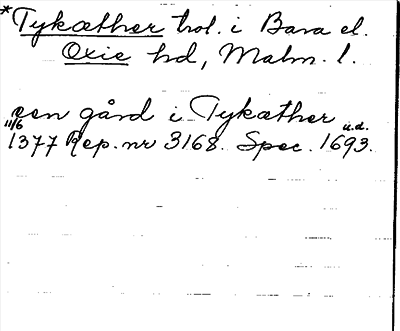 *Tykæther trol. i Bara el.
Oxie hd, Malm. l.
een gård i Tykæther u.d.
11/6 1377 Rep. nr 3168. Spec. 1693.